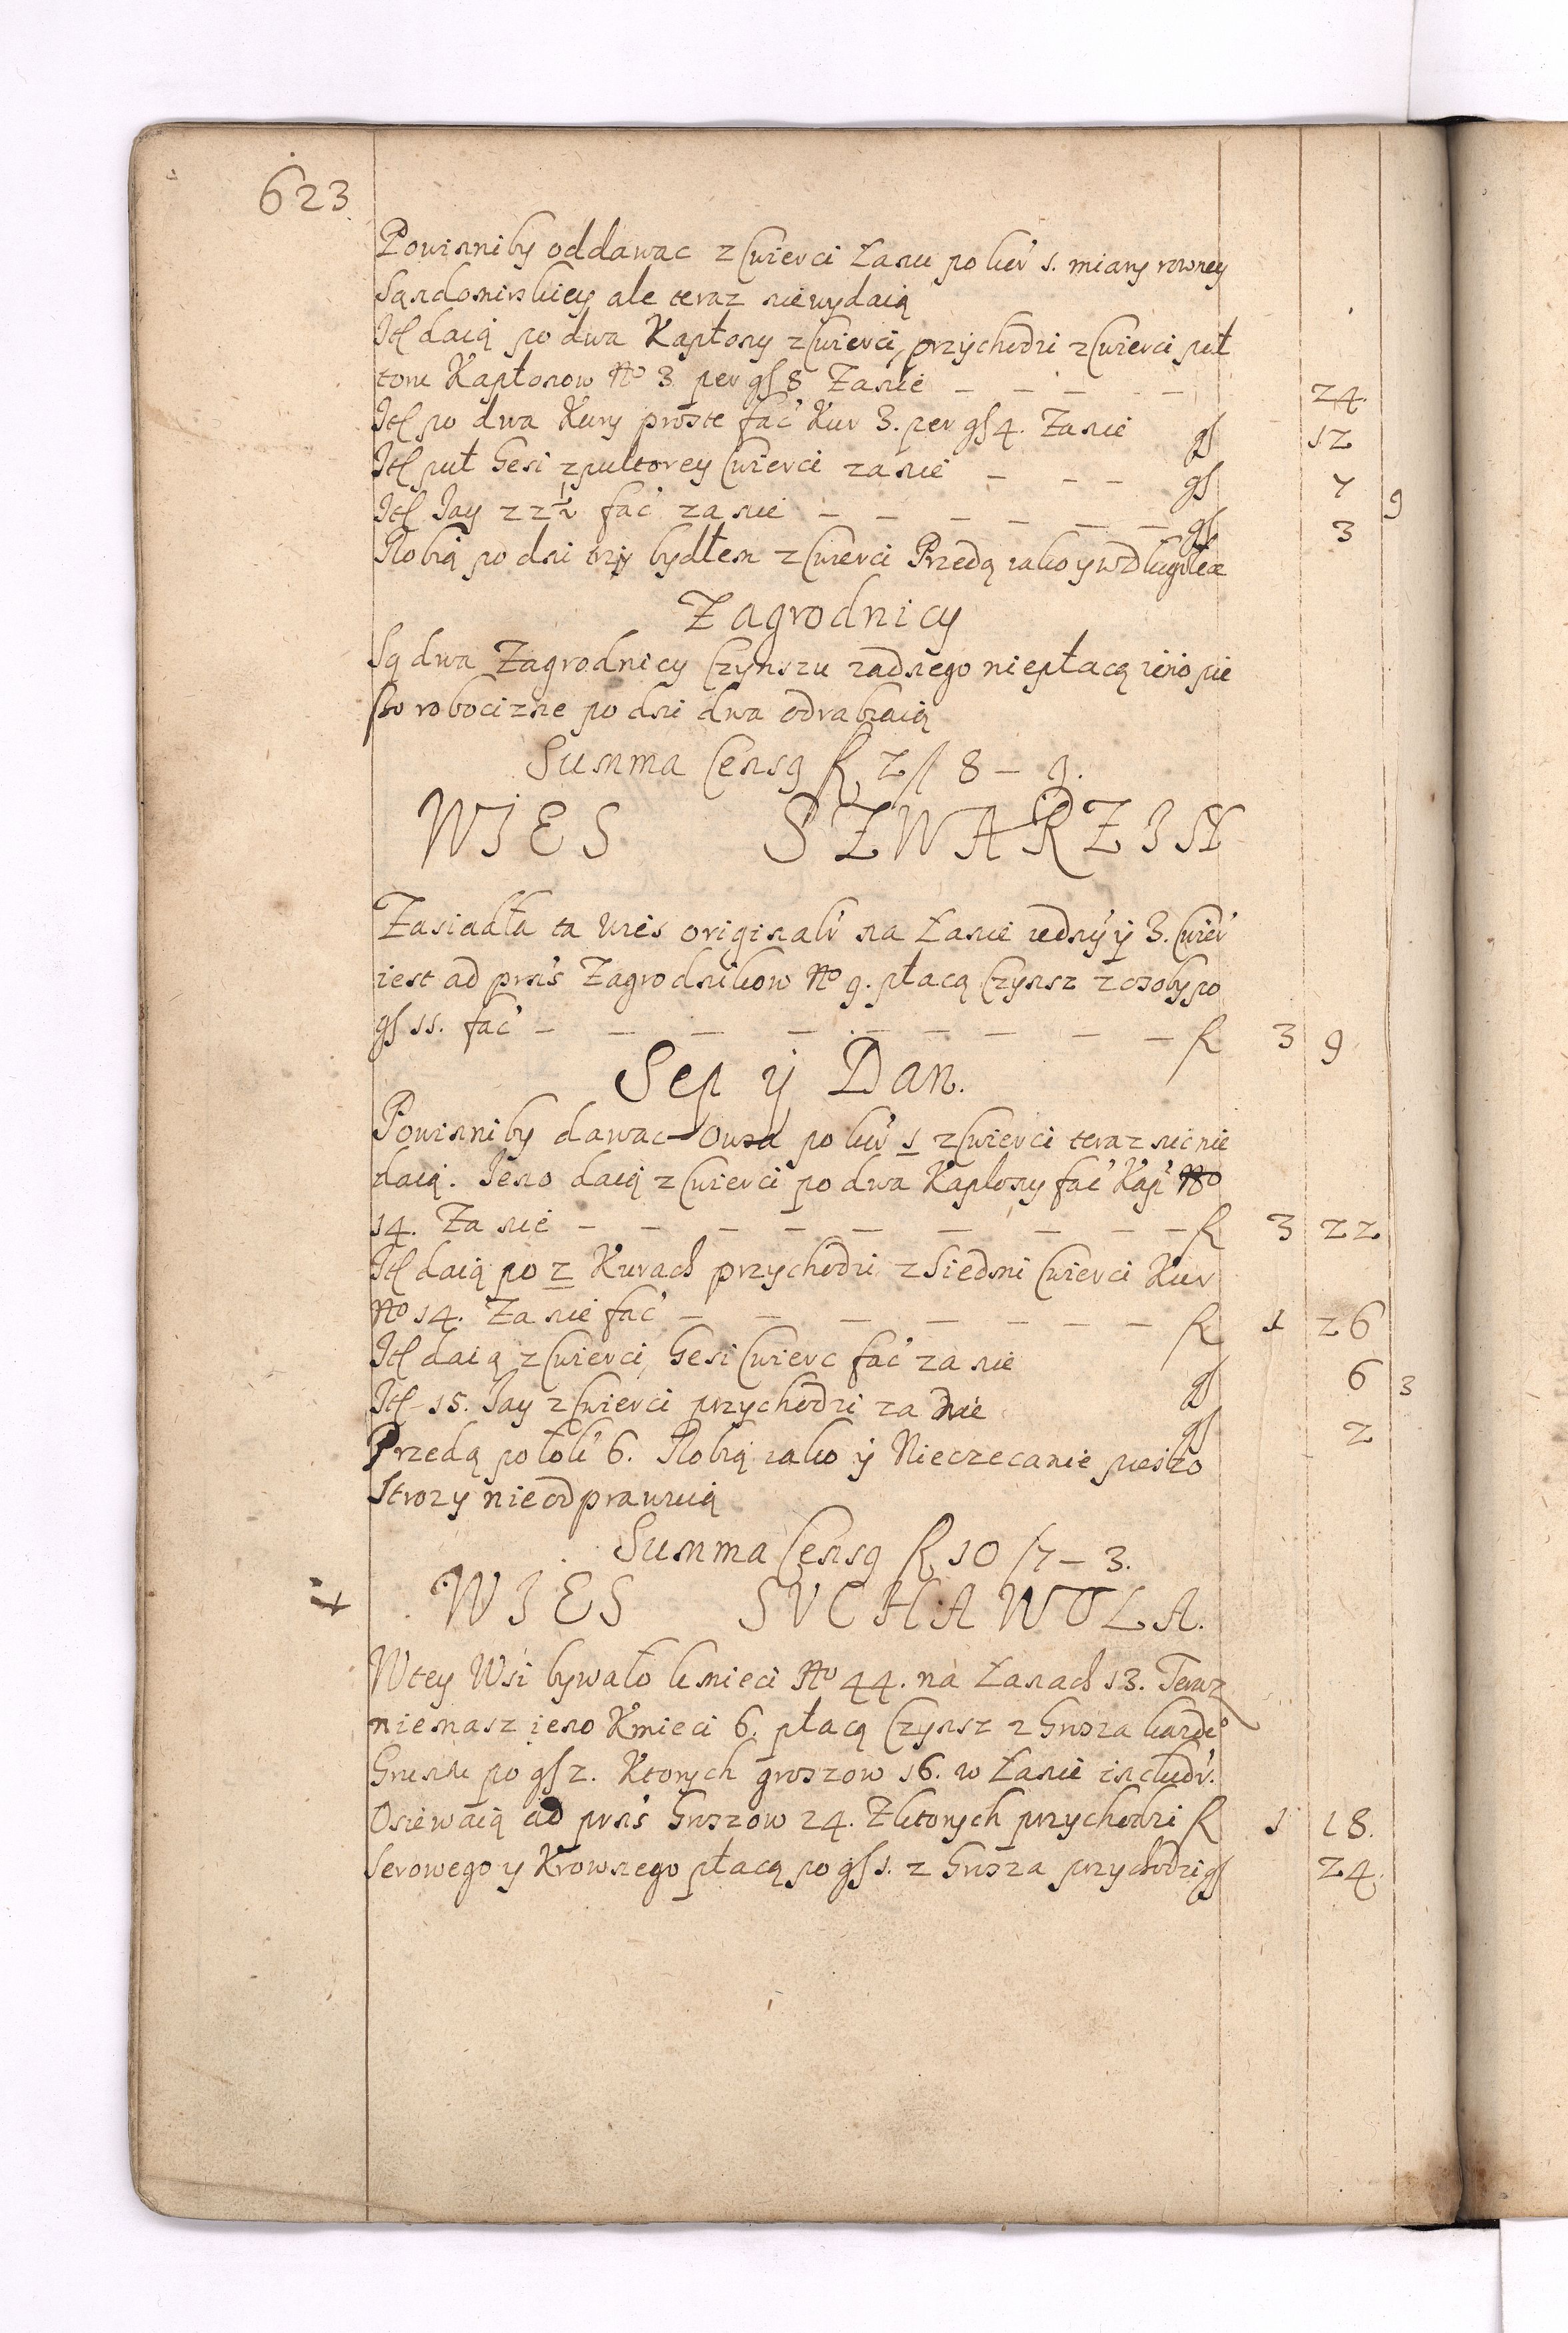 623
Powinniby oddawac z Cwierci Łanu po kor̃ 1. miary rowney
Sandomirskiey ale teraz niewydaią
Itꝭ daią po dwa Kapłony z Cwierci, przychodzi z Cwierci puł
toru Kapłonow No 3 per gſ 8 Za nie – – – – – 24.
Itꝭ po dwa Kury proste fac̃ Kur 3. per gſ 4. Za nie gſ 12
Itꝭ puł Gesi z pułtorey Cwierci za nie – – – gſ 4 9
Itꝭ Jay 22 1/2 fac̃ za nie – – – – – – gſ 3
Robią po dni trzy bydłem z Cwierci Przedą iako y w Długołę
Zagrodnicy
Są dwa Zagrodnicy Czynszu zadnego niepłacą ieno pie
szo robocizne po dni dwa odrabiaią
Summa Censꝯ R 2/ 8 – 9.
WIES SZWARZIN
Zasiadła ta wies originalr̃ na Łanie iedny̎ y 3. Cwier̃
iest ad prñs Zagrodnikow No 9. płacą Czynsz z osoby po
gſ 11. fac̃ – – – – – – – – – R 3 9
Sep ÿ Dan.
Powinniby dawac Owsa po kor̃ 1 z Cwierci teraz nic nie
daią. Jeno daią z Cwierci po dwa Kapłony fac̃ Kap̃ No
14. Za nie – – – – – – – – – R 3 22
Itꝭ daią po 2 Kurach przychodzi z Siedmi Cwierci Kur
No 14. Za nie fac̃ – – – – – – – R 1 26
Itꝭ daią z Cwierci, Gesi Cwierc fac̃ za nie gſ 6 3
Itꝭ 15. Jay z Cwierci przychodzi za nie gſ 2
Przedą po łok̃ 6. Robią iako ÿ Nieczecanie pieszo
Strozy nie odprawuią
Summa Censꝯ R 10 /7 – 3.
WIES SUCHAWOLA.
W tey Wsi bywało kmieci No 44. na Łanach 13. Teraz
niemasz ieno Kmieci 6. płacą Czynsz z Grosza kazdeº
Gruntu po gſ 2. Ktorych groszow 16. w Łanie includr̃.
Osiewaią ad prñs Groszow 24. Z ktorych przychodzi R 1 18.
Serowego y Krownego płacą po gſ 1. z Grosza przychodzi gſ 24.